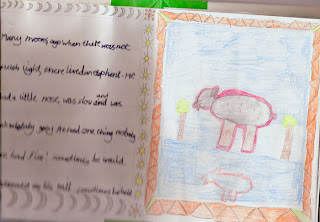 Many moons ago when that was not
much light, there lived an elephant. He
had a little nose, was slow and was
grey. He had one thing nobody
had Fire! sometimes he would
his ball sometimes he would